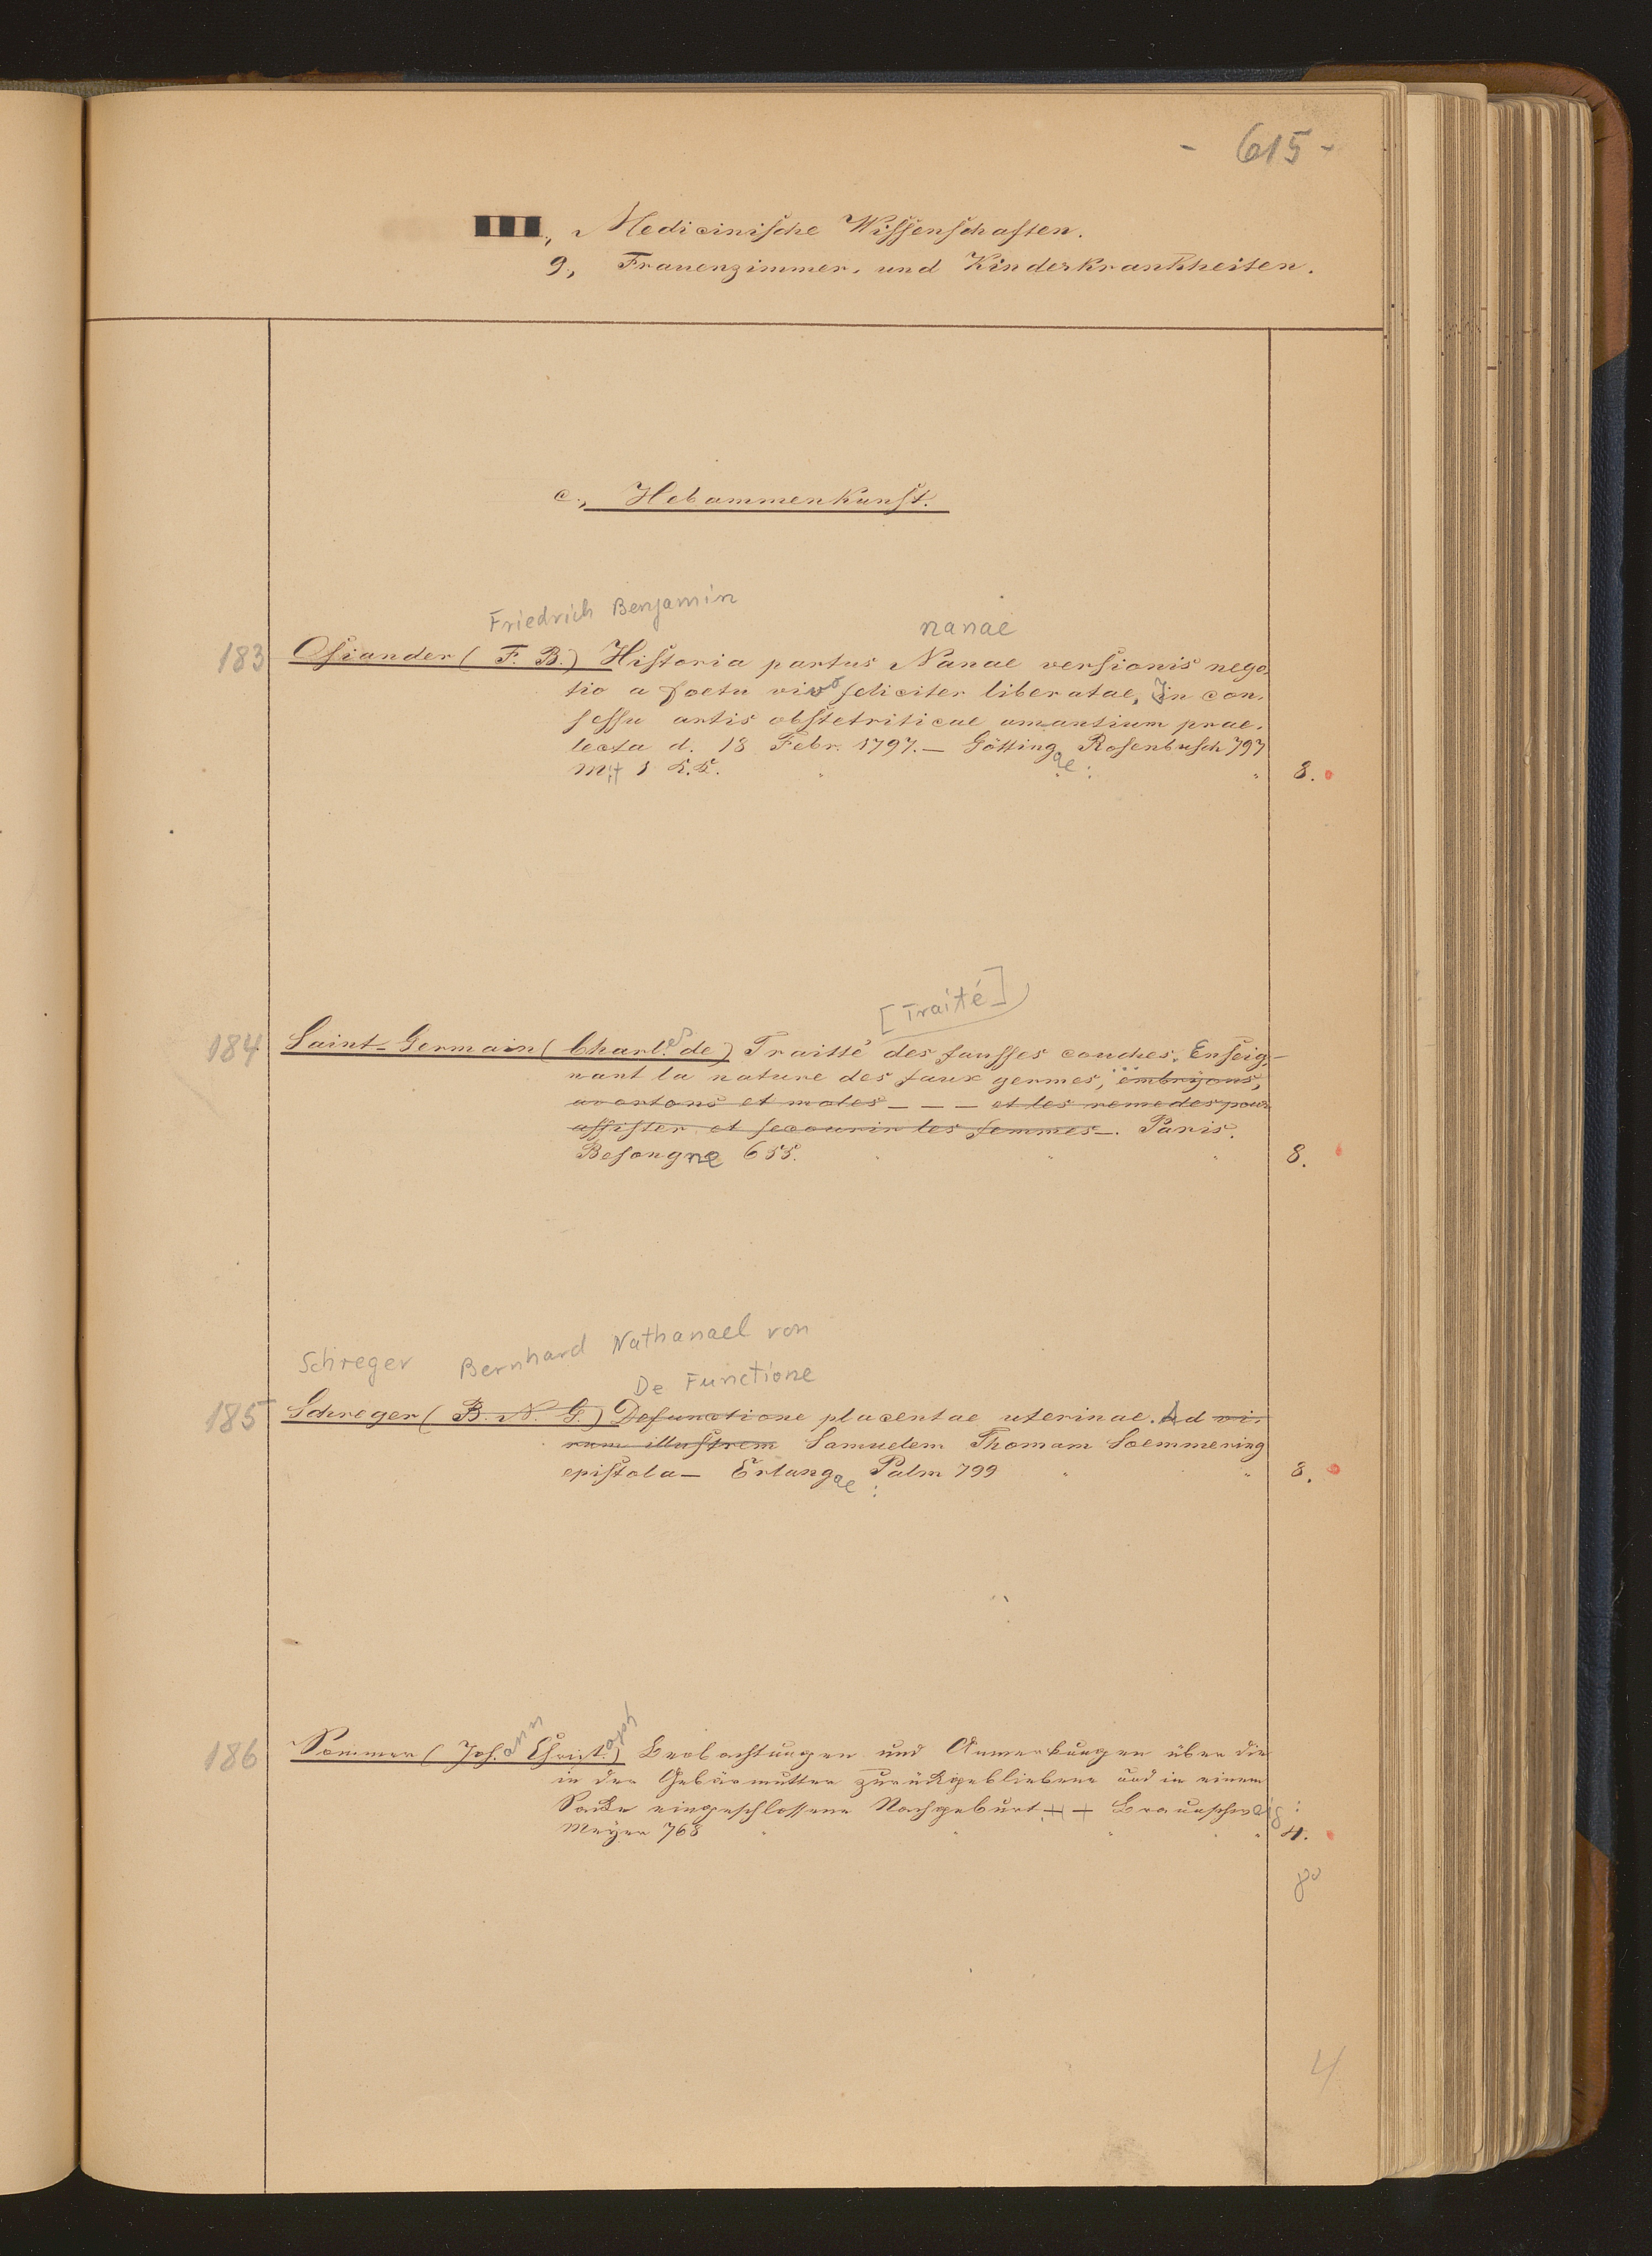 - 615 -
III., Medicinische Wissenschaften.
9., Frauenzimmer- und Kinderkrankheiten.
c., Hebammenkunst.
Friedrich Benjamin
nanae
183 Osiander (F. B.) Historia partus Nanae versionis nego-
tio a foetu vivo feliciter liberatae, In con-
sessu artis obstetriticae amantium prae-
lecta d. 13 Febr. 1797. — Göttingae: Rosenbusch 797
mit 1 K.K. 8.
[Traité]
184 Saint-Germain (Charl.es de) Traitté des fausses couches. Enseig-
nant la nature des faux germes, ... embryons,
avortons et moles - - - et les remedes pour
assister et secourir les femmes —. Paris.
Besongne 655. 8.
Schreger Bernhard Nathanael von
De Functione
185 Schreger (B. N. G.) Defunctione placentae uterinae. Ad vi-
rum illustrem Samuelem Thomam Soemmering
epistola — Erlangae: Palm 799 8.
186 Sommer (Joh.ann Christ.oph) Beobachtungen und Anmerkungen über die
in der Gebärmutter zurückgebliebene und in einem
Sacke eingeschlossene Nachgeburt + + Braunschweig:
Meyer 768 4.
8°
4